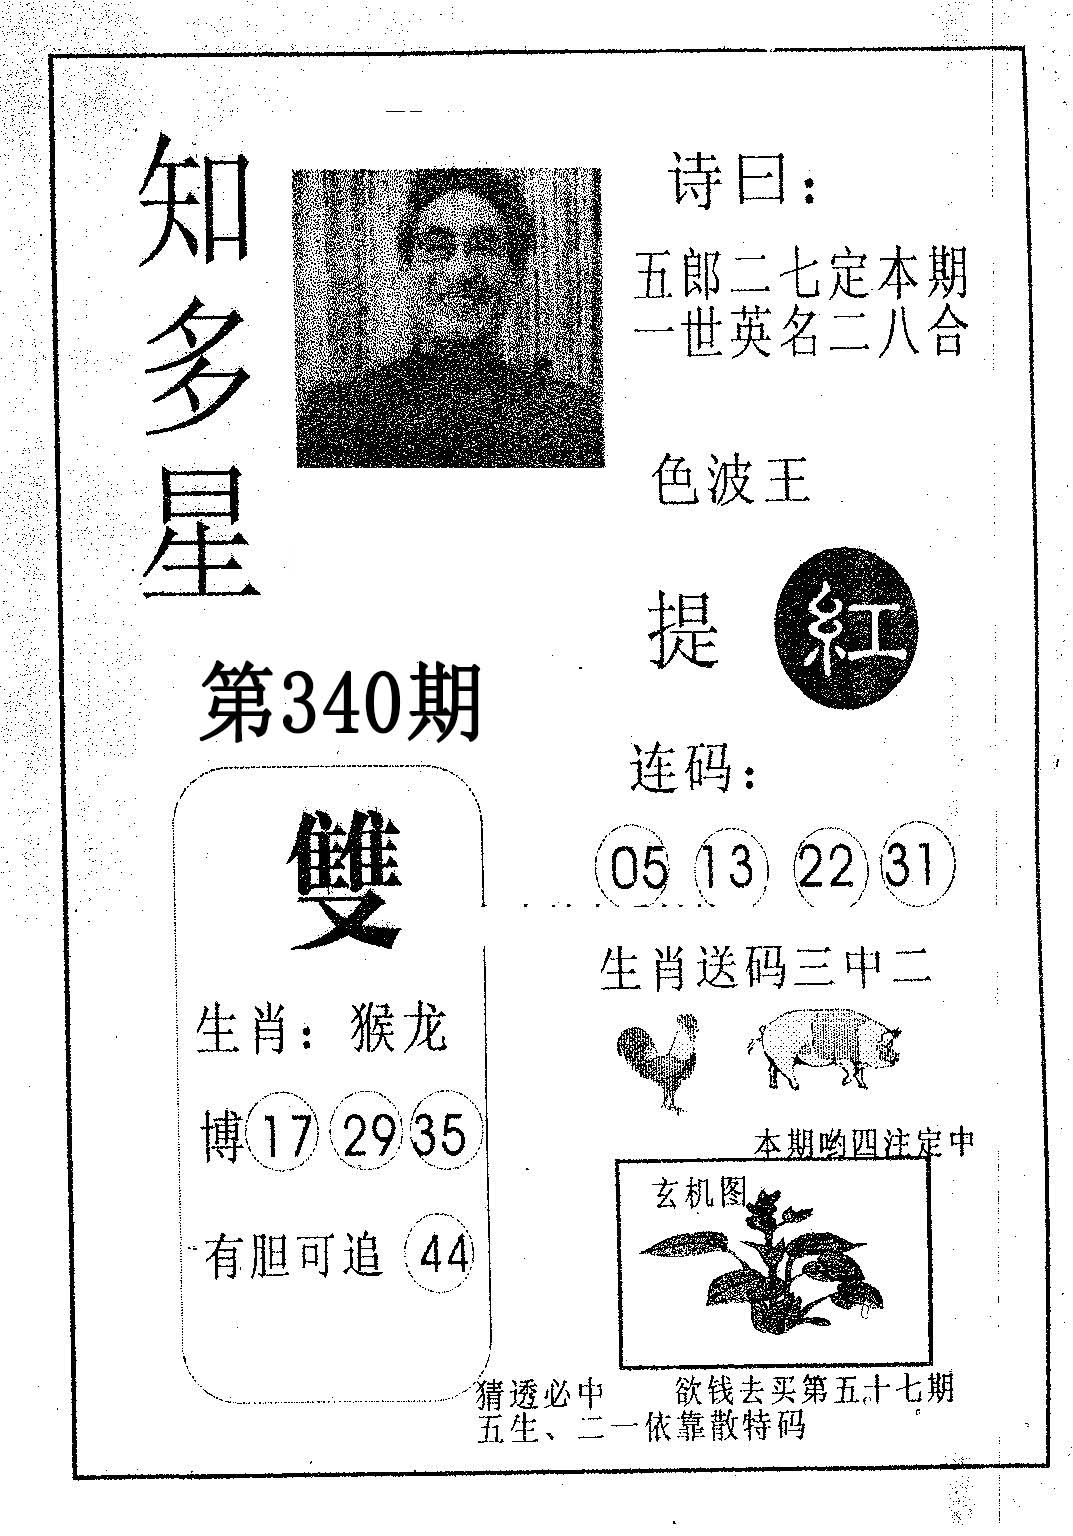 知多星
诗曰：
五郎二七定本期
一世英名二八合
色波王
提 紅
第340期
连码：
05 13 22 31
雙
生肖：猴龙
博 17 29 35
有胆可追 44
生肖送码三中二
本期哟四注定中
玄机图
猜透必中 欲钱去买第五十七期
五生、二一依靠散特码